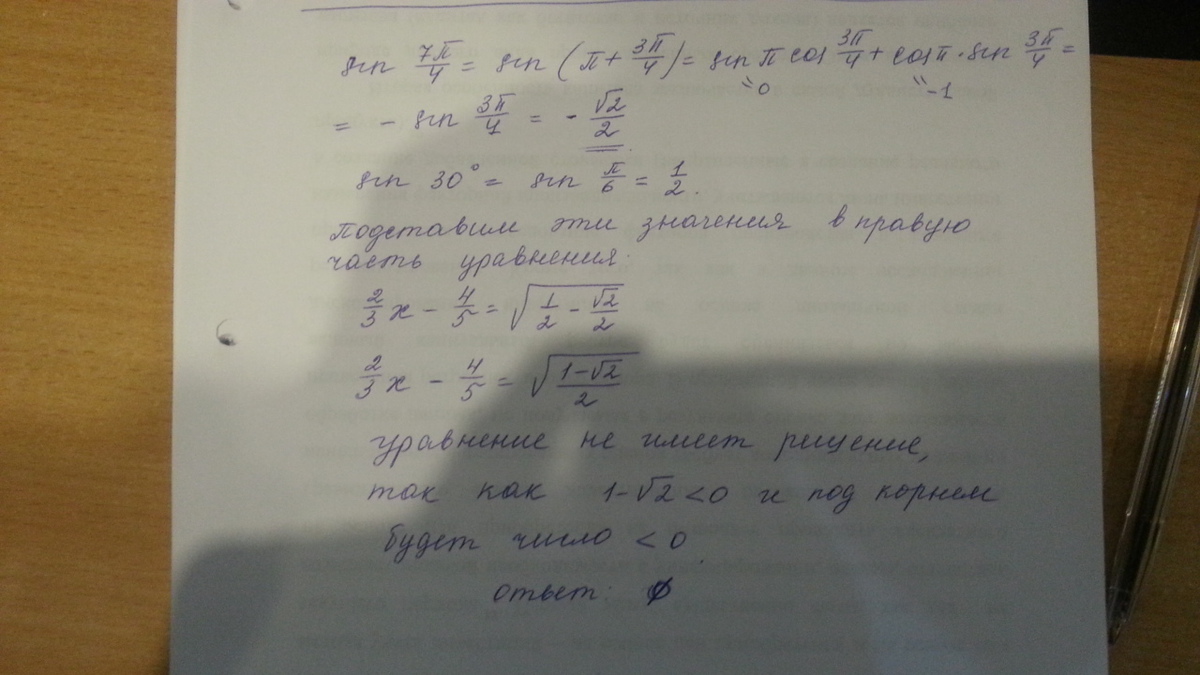 sin 7π/4 = sin (π + 3π/4) = sin π cos 3π/4 + cos π · sin 3π/4 =
"0 "-1
= - sin 3π/4 = - √2/2.
sin 30° = sin π/6 = 1/2.
Подставим эти значения в правую
часть уравнения:
2/3 x - 4/5 = √(1/2 - √2/2)
2/3 x - 4/5 = √((1-√2)/2)
уравнение не имеет рищение,
так как 1-√2 < 0 и под корнем
будет число < 0.
ответ: ∅